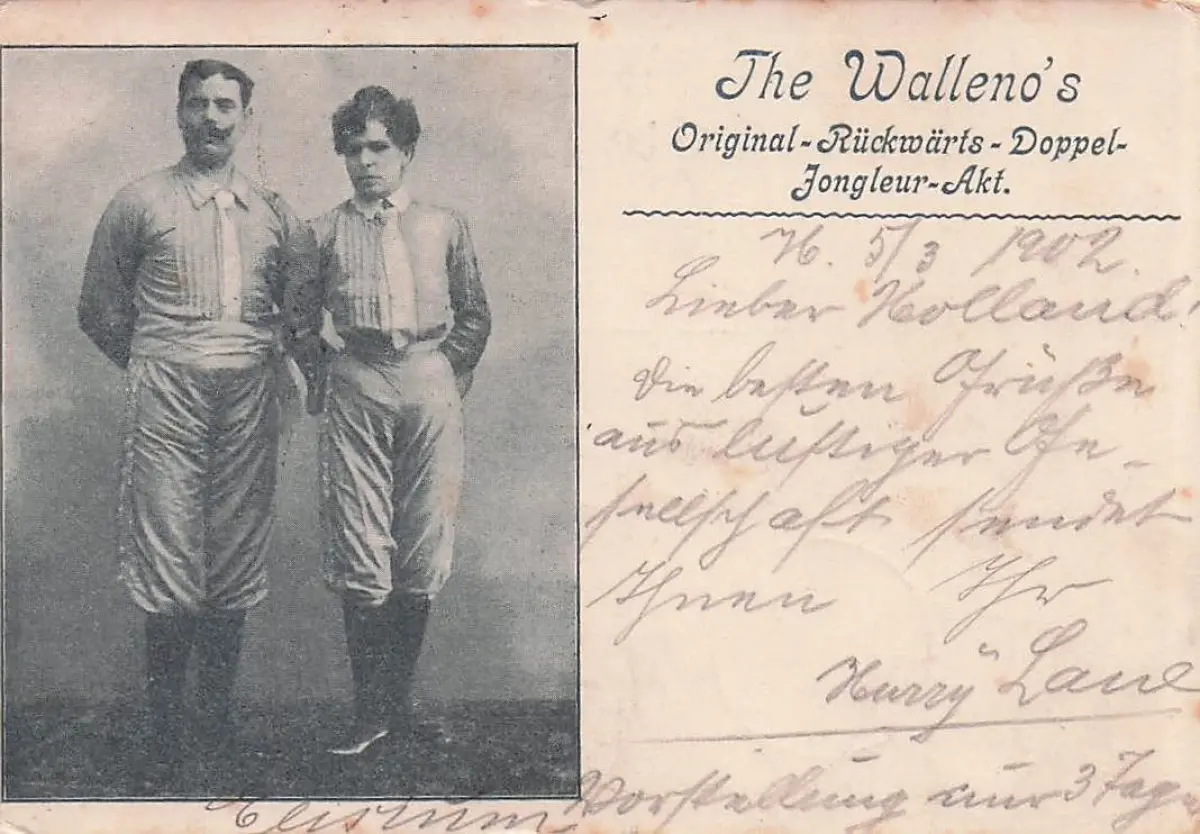 The Walleno's
Original-Rückwärts-Doppel-
Jongleur-Akt.
H. 5/3 1902.
Lieber Holland!
Die besten Grüße
aus lustiger Ge-
sellschaft sendet
Ihnen Ihr
Harry Lane
Elisium Vorstellung nur 3 Tage